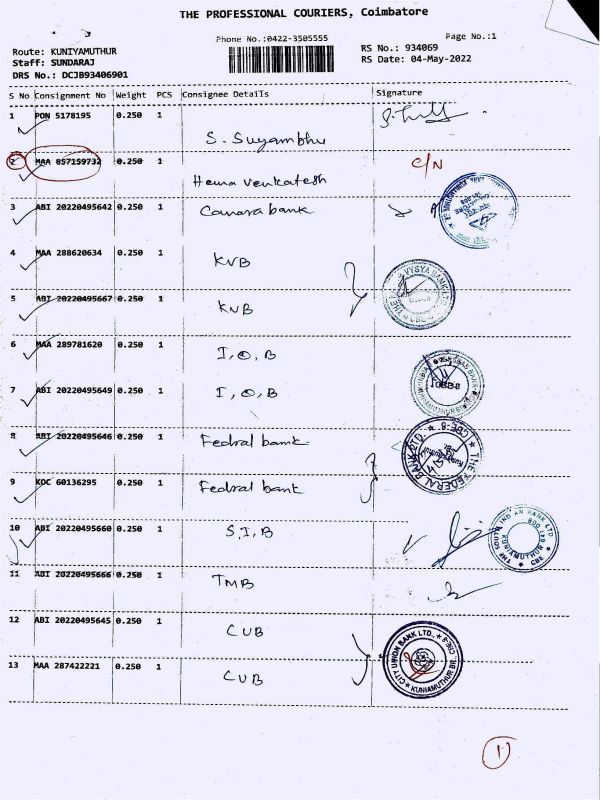 THE PROFESSIONAL COURIERS, Coimbatore
Phone No.:0422-3505555
Page No.:1
Route: KUNIYAMUTHUR
RS No.: 934069
Staff: SUNDARAJ
RS Date: 04-May-2022
DRS No.: DCJB93406901
S No Consignment No Weight PCS Consignee Details Signature
1 PON 5178195 0.250 1
S. Suyambhu
2 MAA 857159732 0.250 1
C/N
Hema Venkatesh
3 ABI 20220495642 0.250 1 Canara bank
4 MAA 288620634 0.250 1
KVB
5 ABI 20220495667 0.250 1
KVB
6 MAA 289781620 0.250 1
I.O.B
7 ABI 20220495649 0.250 1
I.O.B
8 ABI 20220495646 0.250 1
Fedral bank
THE FEDERAL BANK LTD. CBE-8
9 KOC 60136295 0.250 1
Fedral bank
10 ABI 20220495660 0.250 1
S.I.B
THE SOUTH INDIAN BANK LTD KUNIAMUTHUR CBE
11 ABI 20220495666 0.250 1
TMB
12 ABI 20220495645 0.250 1
CUB
CITY UNION BANK LTD., CBE-8 KUNIAMUTHUR BR.
13 MAA 287422221 0.250 1
CUB
1